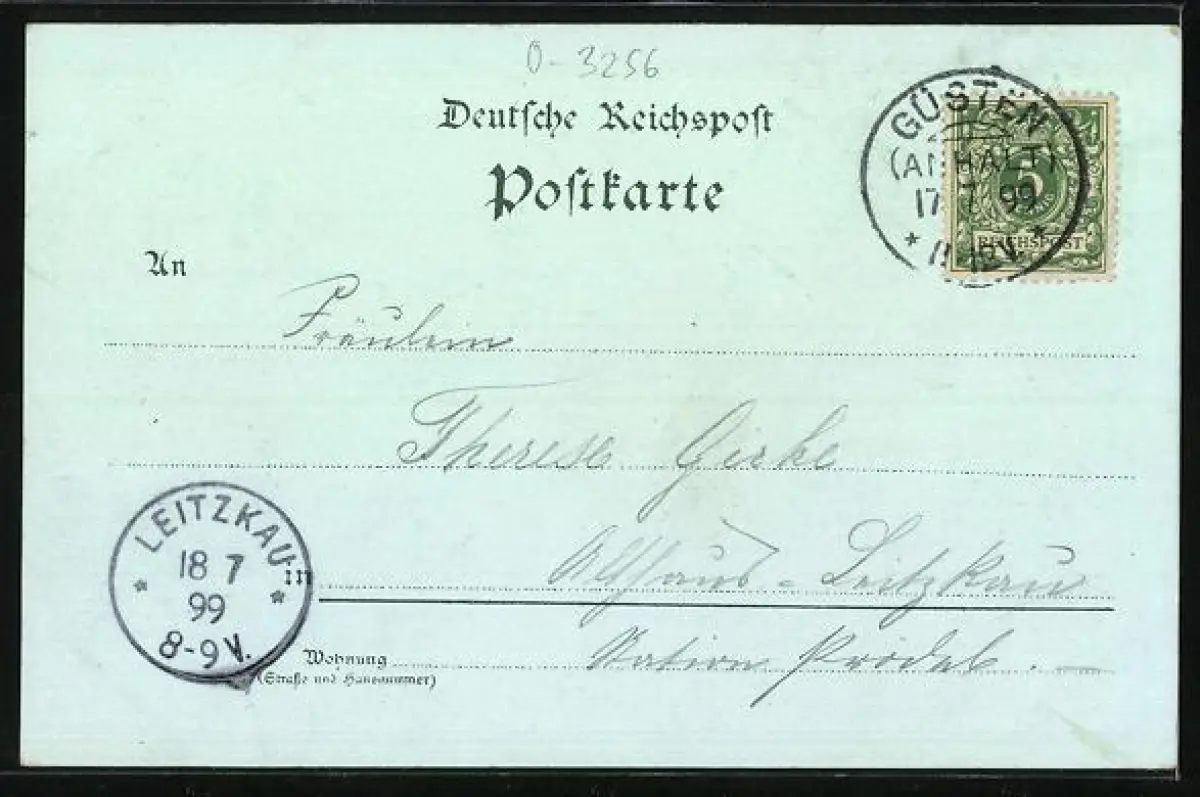 0-3256
Deutsche Reichspost
Postkarte
GÜSTEN
(ANHALT)
17 7 99
11-12V.
5
REICHSPOST
An
Fräulein
Therese Gerke
LEITZKAU
18 7
99
8-9V.
in Althaus - Leitzkau
Wohnung Station Prödel.
(Straße und Hausnummer)